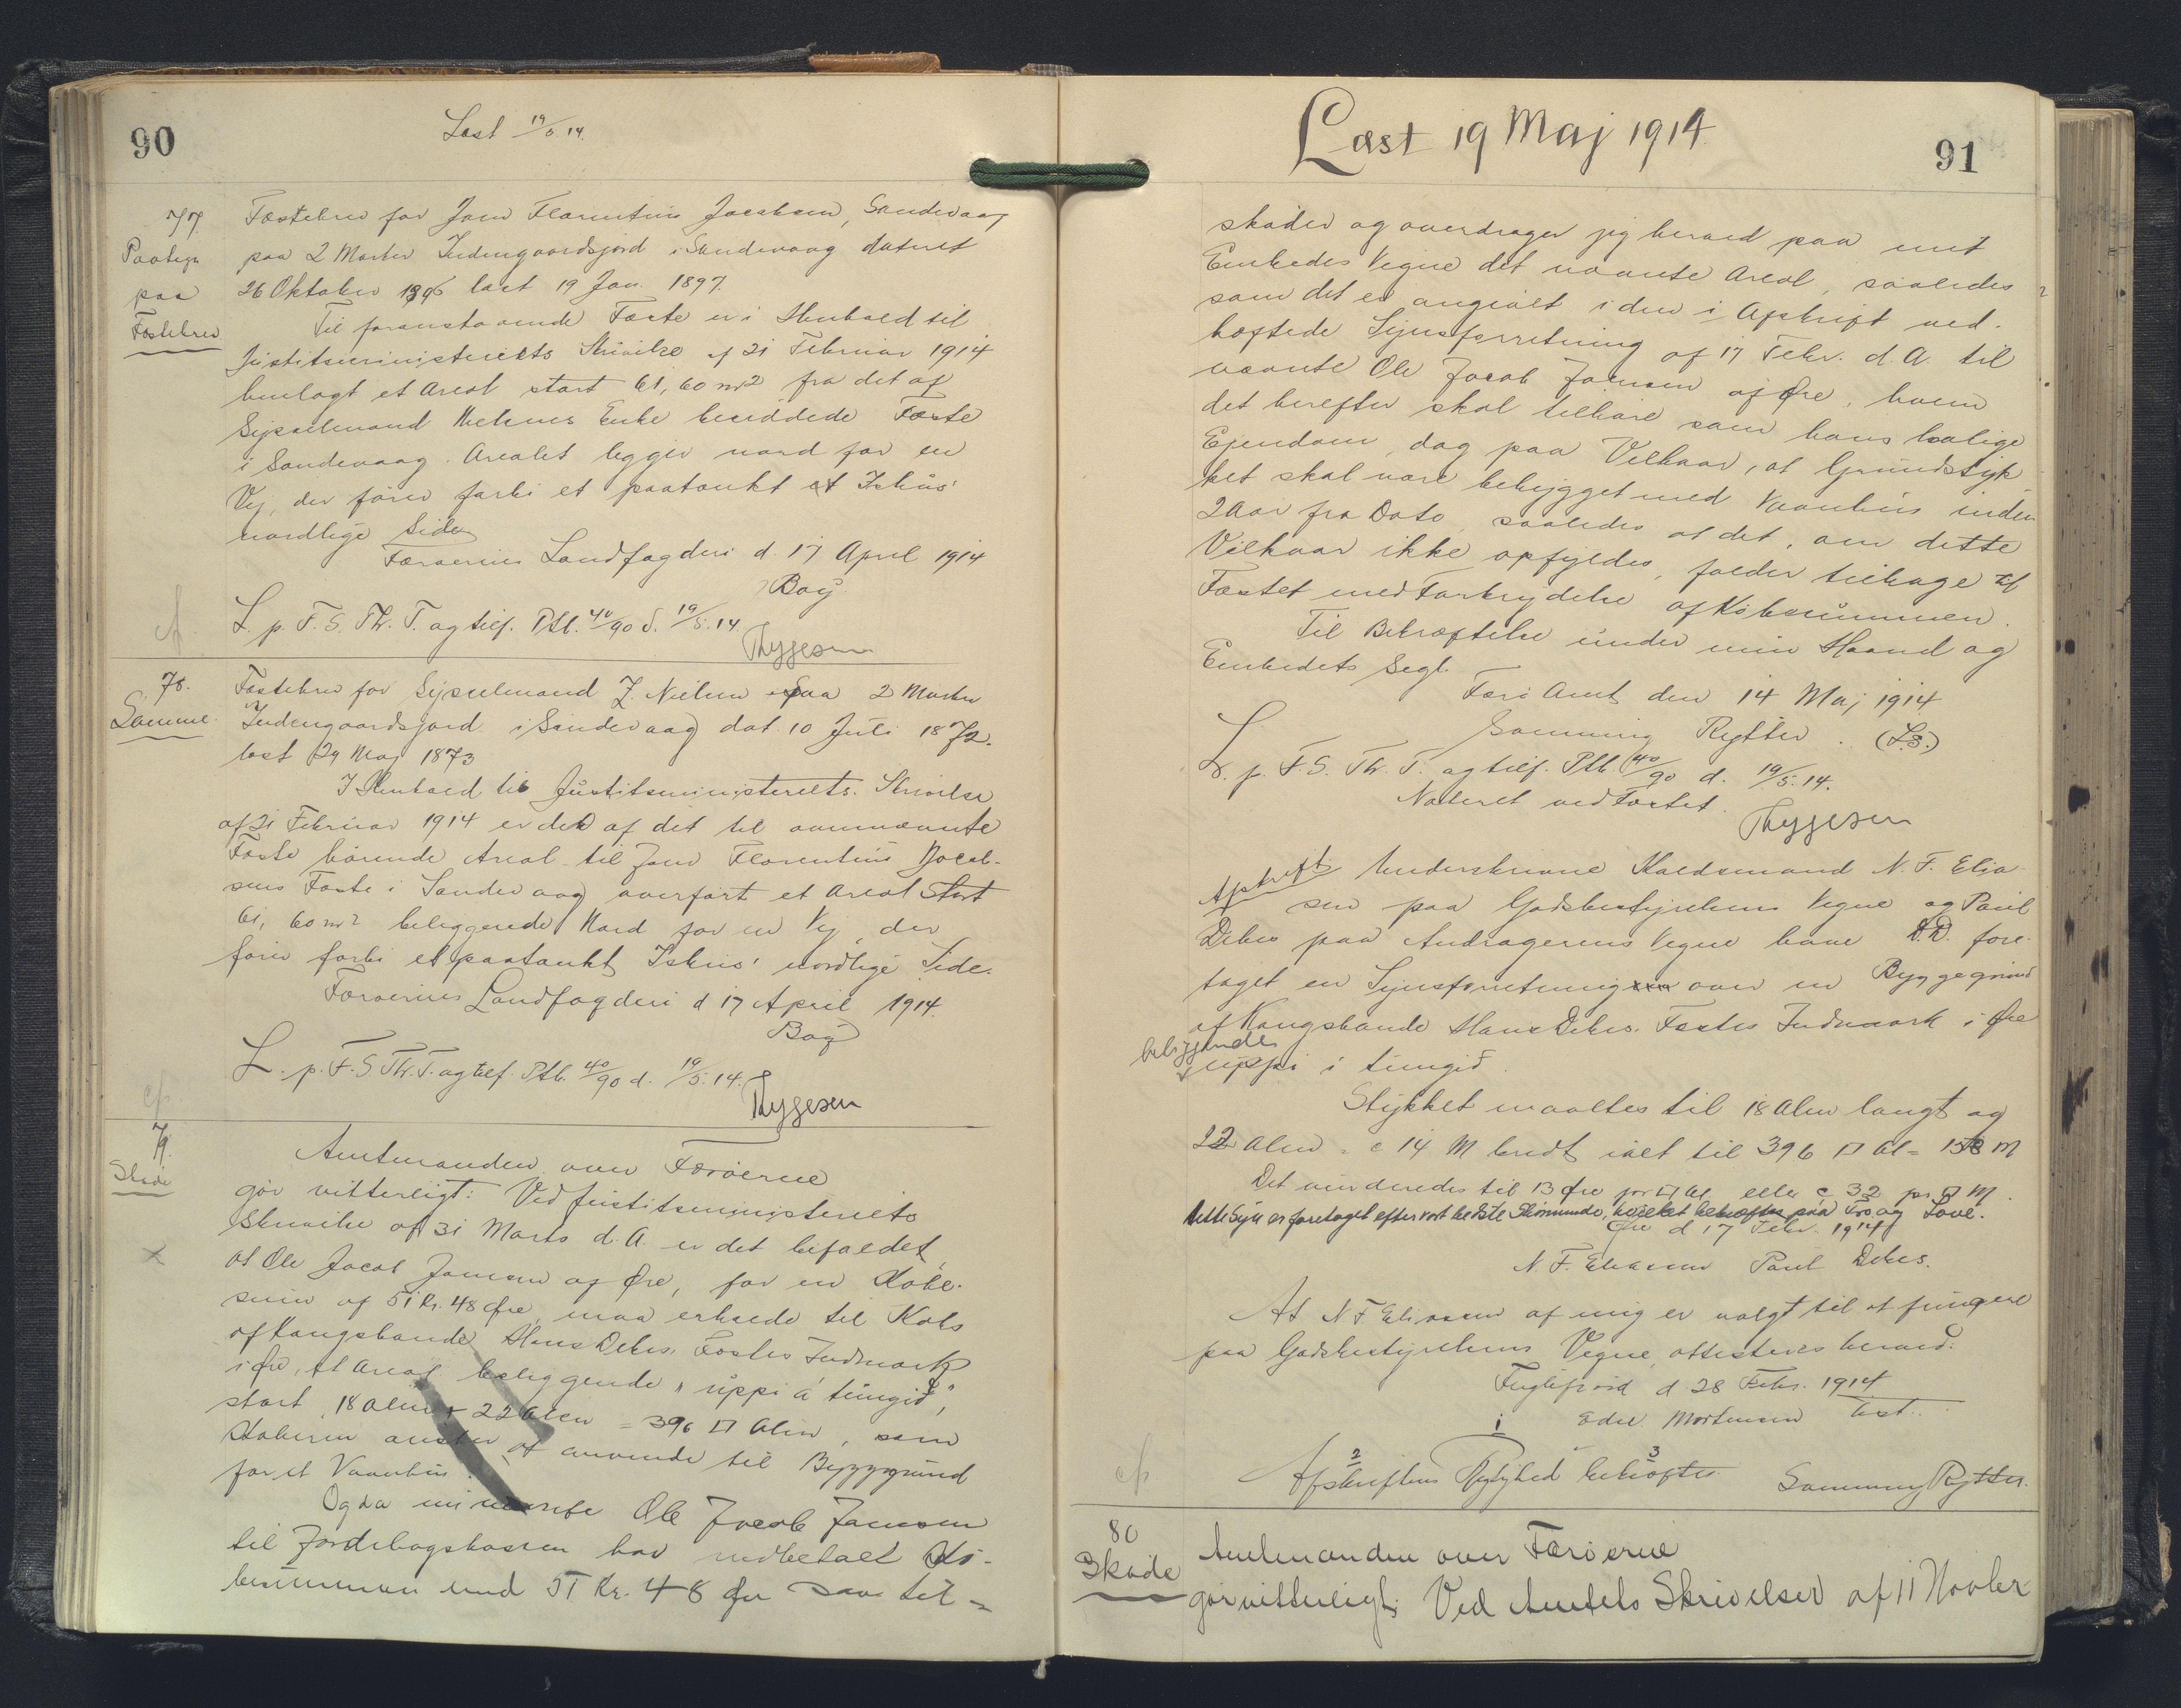 90
Læst 19/5. 14.
77.
Paategn
paa
Fæstebrev
Fæstebrev for Jens Florentius Jacobsen, Sandevaag
paa 2 Marker Indengaardsjord i Sandevaag dateret
26 Oktober 1896 læst 19 Jan. 1897.
Til foranstaaende Fæste er i Henhold til
Justitsministeriets Skrivelse af 21 Februar 1914
henlagt et Areal stort 61,60 m2 fra det af
Sysselmand Nielsens Enke besiddede Fæste
i Sandevaag. Arealet ligger nord for en
Vej, der fører forbi et paatænkt Ishus'
nordlige Side
Færøernes Landfogderi d. 17 April 1914
Bay
L. p. F. S. Th. T. og tilf. Ptb. 40/90 d. 19/5. 14.
Thygesen
cf.
78.
Samme.
Fæstebrev for Sysselmand Z. Nielsen paa 2 Marker
Indengaardsjord i Sandevaag dat. 10 Juli 1872.
læst 29 Maj 1873
I Henhold til Justitsministeriets Skrivelse
af 21 Februar 1914 er der af det til ommænte
Fæste hørende Areal til Jens Florentius Jacob-
sens Fæste i Sandevaag overført et Areal stort
61,60 m2 beliggende Nord for en Vej, der
fører forbi et paatænkt Ishus' nordlige Side.
Færøernes Landfogderi d 17 April 1914.
Bay
L. p. F. S. Th. T. og tilf. Ptb. 40/90 d. 19/5. 14.
Thygesen
cf.
79.
Skøde
Amtmanden over Færøerne
gør vitterligt: Ved Justitsministeriets
Skrivelse af 31 Marts d. A. er det bifaldet,
at Ole Jacob Joensen af Øre, for en Købe-
sum af 51 Kr. 48 Øre maa erholde til Køb
af Kongsbonde Hans Debes Fæstes Indmark
i Øre, et Areal beliggende "uppi á túngið",
stort 18 Alen x 22 Alen = 396 □ Alen, som
Køberen ønsker at anvende til Byggegrund
for et Vaanhus.
Og da nævnte Ole Jacob Joensen
til Jordebogskassen har indbetalt Kø-
besummen med 51 Kr. 48 Øre saa til=
Læst 19 Maj 1914
91
skøder og overdrager jeg herved paa mit
Embedes Vegne det nævnte Areal, saaledes
som det er angivet i den i Afskrift ved-
hæftede Synsforretning af 17 Febr. d. A. til
nævnte Ole Jacob Joensen af Øre, hvem
det herefter skal tilhøre som hans lovlige
Ejendom, dog paa Vilkaar, at Grundstyk-
ket skal være bebygget med Vaanhus inden
2 Aar fra Dato, saaledes at det, om dette
Vilkaar ikke opfyldes, falder tilbage til
Fæstet med Fortrydelse af Købesummen.
Til Bekræftelse under min Haand og
Embedets Segl.
Færø Amt den 14 Maj 1914
Svenning Rytter. (L.S.)
L. p. F. S. Th. T. og tilf. Ptb. 40/90 d. 19/5. 14.
Noteret ved Fæstet.
Thygesen
Afskrift
Underskrevne Kaldsmand N. F. Elia-
sen paa Godsbestyrelsens Vegne og Paul
Debes paa Andragerens Vegne have D.D. fore-
taget en Synsforretning over en Byggegrund
af Kongsbonde Hans Debes. Fæstes Indmark i Øre
beliggende
uppi i túngið.
Stykket maaltes til 18 Alen langt og
22 Alen = c 14 M bredt ialt til 396 □ Al = 158 M
Det vurderedes til 13 Øre pr □ Al. eller c 32 pr. □ M.
Dette Syn er foretaget efter vort bedste Skønnende, hvilket bekræftes paa Tro og Love.
Øre d 17 Febr. 1914
N. F. Eliasen Paul Debes.
At N F Eliasen af mig er valgt til at fungere
paa Godsbestyrelsens Vegne attesteres herved.
Fuglefjord d 28 Febr. 1914
Edw. Mortensen kst.
cf.
Afskriftens Rigtighed bekræftes Svenning Rytter.
80
Skøde
Amtmanden over Færøerne
gør vitterligt: Ved Amtets Skrivelser af 11 Novbr